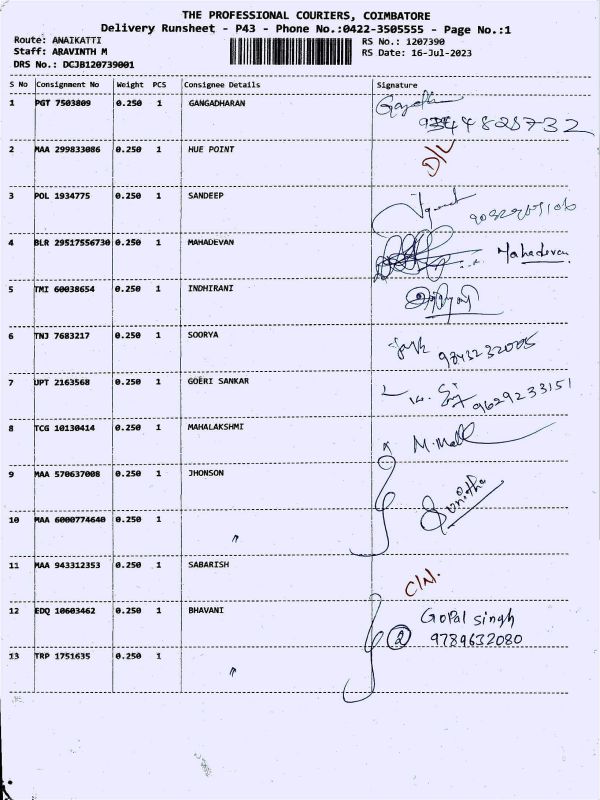 THE PROFESSIONAL COURIERS, COIMBATORE
Delivery Runsheet - P43 - Phone No.:0422-3505555 - Page No.:1
Route: ANAIKATTI
RS No.: 1207390
Staff: ARAVINTH M
RS Date: 16-Jul-2023
DRS No.: DCJB120739001
S No Consignment No Weight PCS Consignee Details Signature
1 PGT 7503809 0.250 1 GANGADHARAN
2 MAA 299833086 0.250 1 HUE POINT D/L
3 POL 1934775 0.250 1 SANDEEP
4 BLR 29517556730 0.250 1 MAHADEVAN Mahadevan
5 TMI 60038654 0.250 1 INDHIRANI
6 TNJ 7683217 0.250 1 SOORYA 9843232005
7 UPT 2163568 0.250 1 GOERI SANKAR 9629233151
8 TCG 10130414 0.250 1 MAHALAKSHMI
9 MAA 570637008 0.250 1 JHONSON
10 MAA 6000774640 0.250 1 "
11 MAA 943312353 0.250 1 SABARISH C/N.
12 EDQ 10603462 0.250 1 BHAVANI Gopal singh
2 9789632080
13 TRP 1751635 0.250 1 "